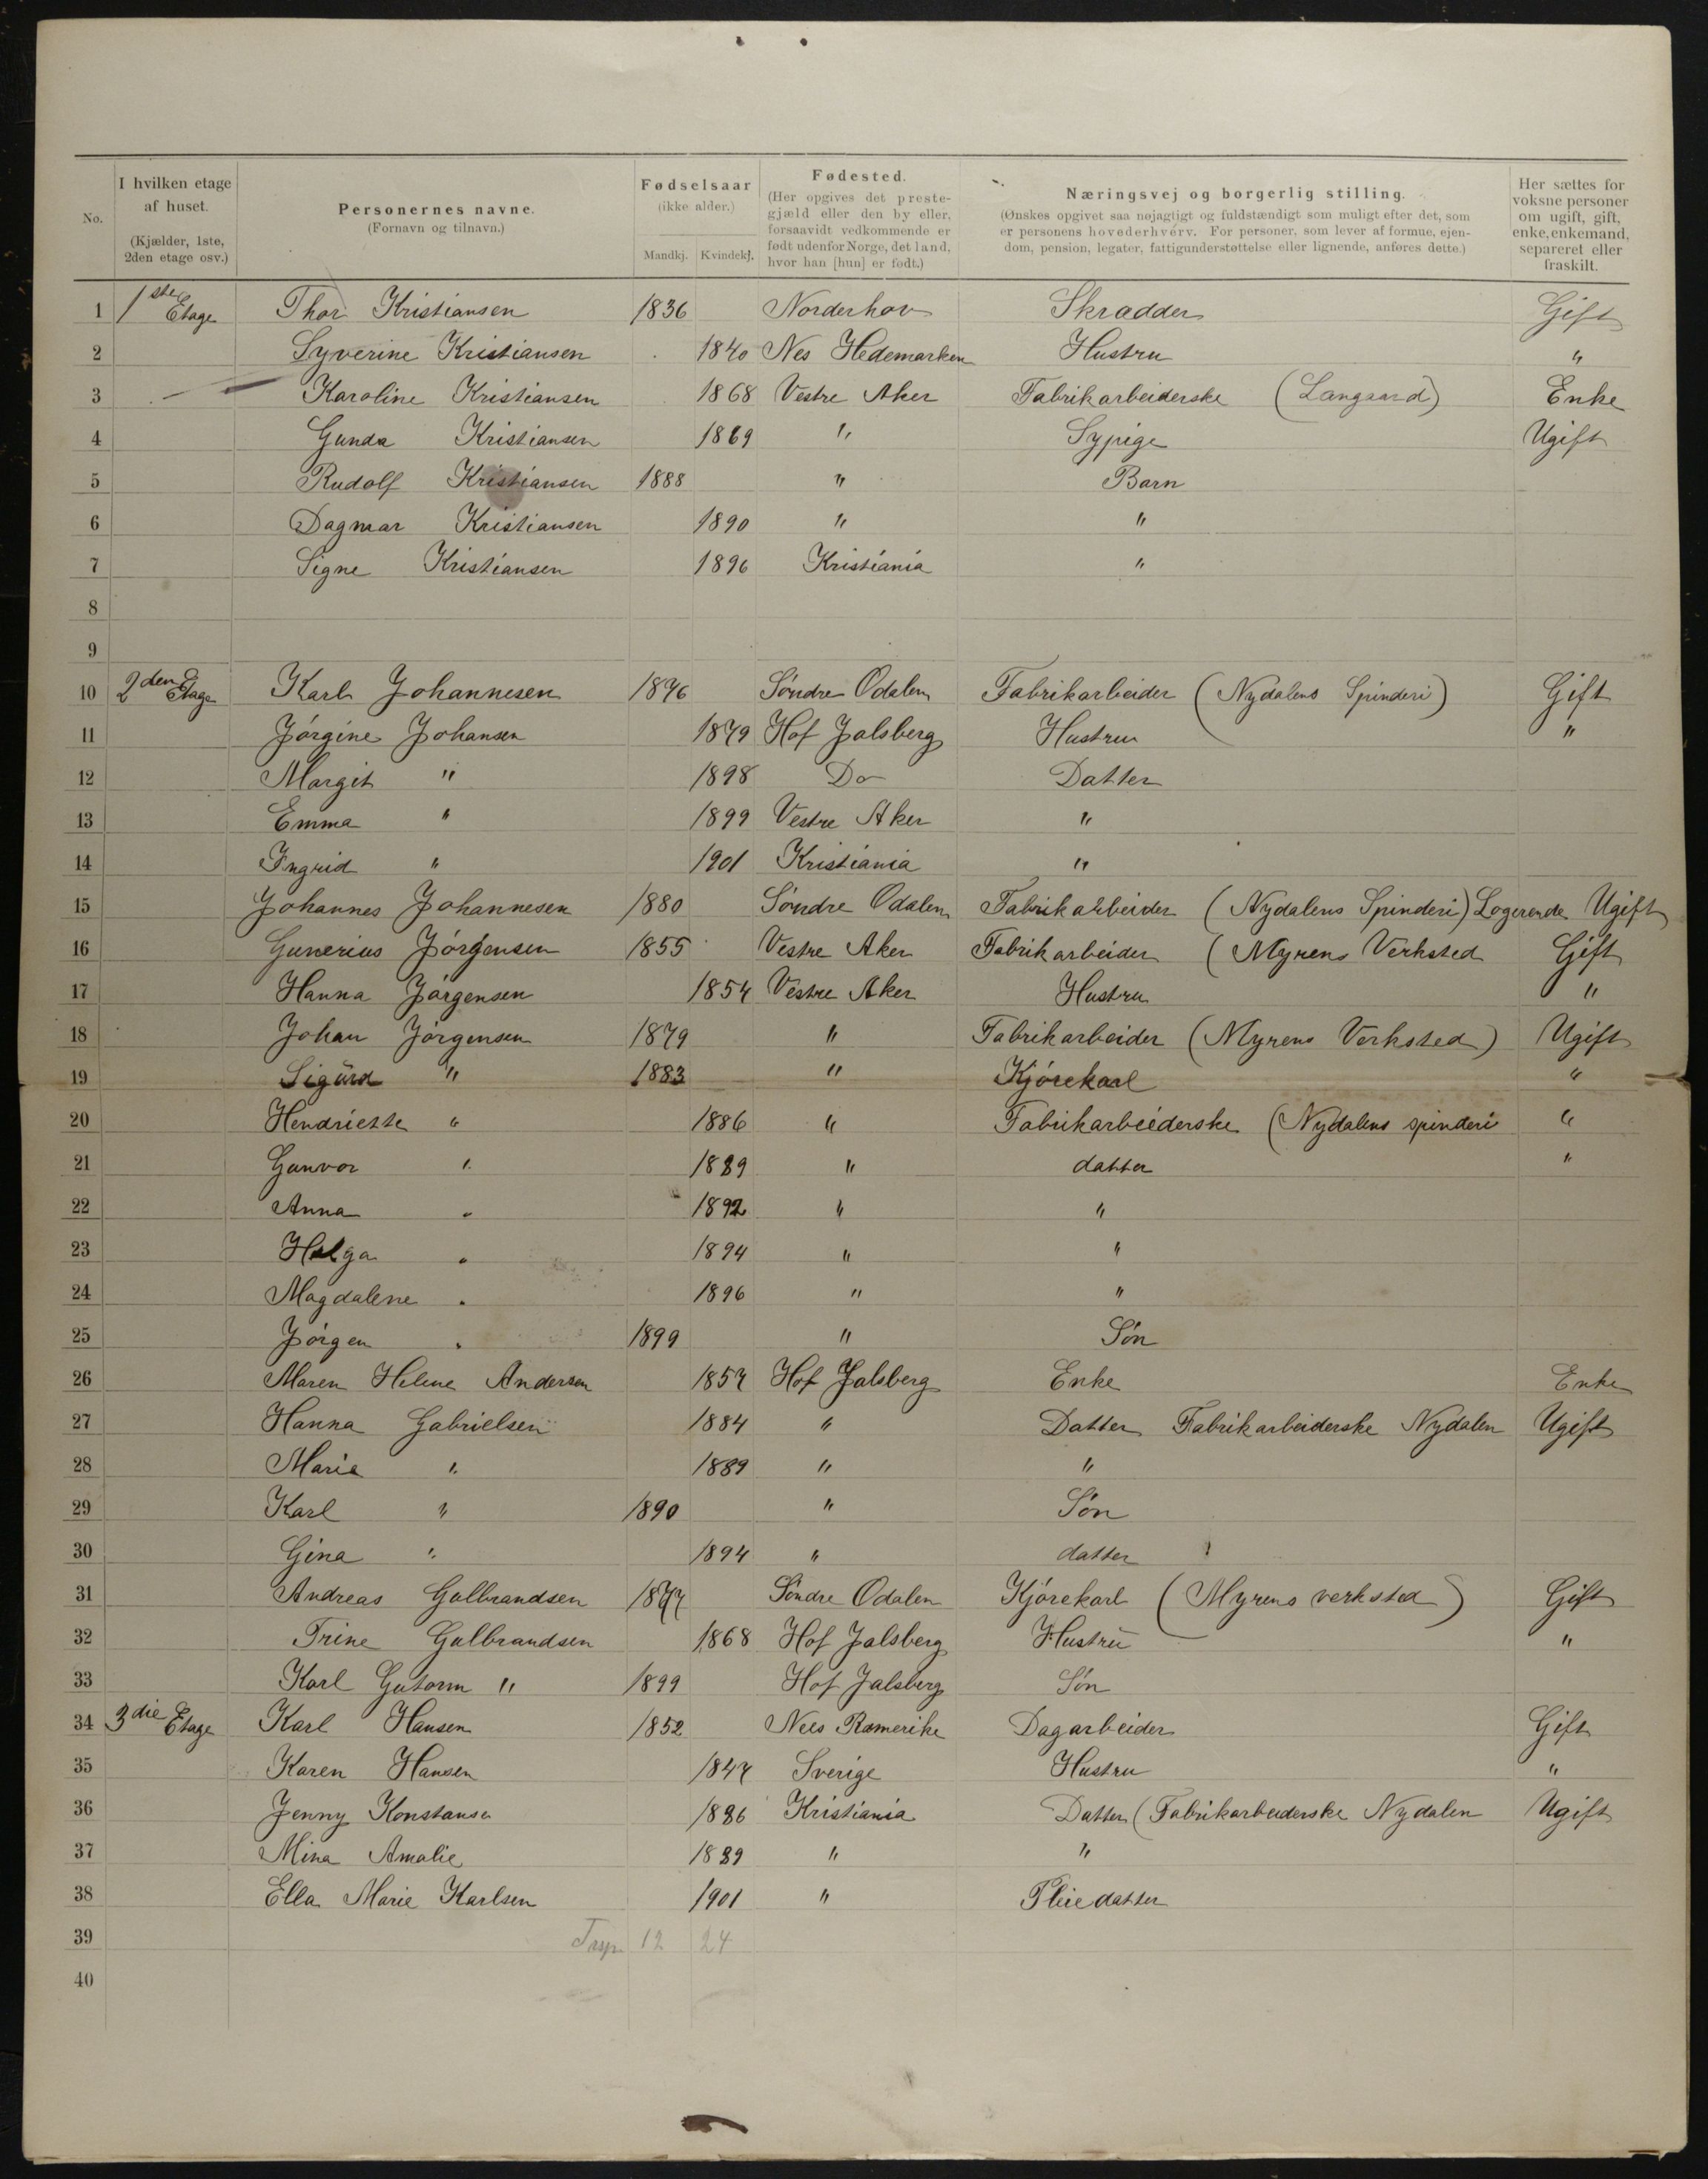 No. | I hvilken etage af huset. (Kjælder, 1ste, 2den etage osv.) | Personernes navne. (Fornavn og tilnavn.) | Fødselsaar (ikke alder.) Mandkj. Kvindekj. | Fødested. (Her opgives det prestegjæld eller den by eller, forsaavidt vedkommende er født udenfor Norge, det land, hvor han [hun] er født.) | Næringsvej og borgerlig stilling. (Ønskes opgivet saa nøjagtigt og fuldstændigt som muligt efter det, som er personens hovederhverv. For personer, som lever af formue, ejendom, pension, legater, fattigunderstøttelse eller lignende, anføres dette.) | Her sættes for voksne personer om ugift, gift, enke, enkemand, separeret eller fraskilt.
1 1ste Etage Thor Kristiansen 1836 Norderhov Skrædder Gift
2 Syverine Kristiansen 1840 Nes Hedemarken Hustru "
3 Karoline Kristiansen 1868 Vestre Aker Fabrikarbeiderske (Langaard) Enke
4 Gunda Kristiansen 1869 " Sypige Ugift
5 Rudolf Kristiansen 1888 " Barn
6 Dagmar Kristiansen 1890 " "
7 Signe Kristiansen 1896 Kristiania "
8
9
10 2den Etage Karl Johannesen 1876 Søndre Odalen Fabrikarbeider (Nydalens Spinderi) Gift
11 Jørgine Johansen 1879 Hof Jalsberg Hustru "
12 Margit " 1898 Do Datter
13 Emma " 1899 Vestre Aker "
14 Ingrid " 1901 Kristiania "
15 Johannes Johannesen 1880 Søndre Odalen Fabrikarbeider (Nydalens Spinderi) Logerende Ugift
16 Gunerius Jørgensen 1855 Vestre Aker Fabrikarbeider (Myrens Verksted Gift
17 Hanna Jørgensen 1854 Vestre Aker Hustru "
18 Johan Jørgensen 1879 " Fabrikarbeider (Myrens Verksted) Ugift
19 Sigurd " 1883 " Kjørekarl "
20 Hendriette " 1886 " Fabrikarbeiderske (Nydalens spinderi "
21 Gunvor " 1889 " datter "
22 Anna " 1892 " "
23 Helga " 1894 " "
24 Magdalene " 1896 " "
25 Jørgen " 1899 " Søn
26 Maren Helene Andersen 1857 Hof Jalsberg Enke Enke
27 Hanna Gabrielsen 1884 " Datter Fabrikarbeiderske Nydalen Ugift
28 Marie " 1889 " "
29 Karl " 1890 " Søn
30 Gina " 1894 " datter
31 Andreas Gulbrandsen 1877 Søndre Odalen Kjørekarl (Myrens verksted) Gift
32 Trine Gulbrandsen 1868 Hof Jalsberg Hustru "
33 Karl Gutorm " 1899 Hof Jalsberg Søn
34 3die Etage Karl Hansen 1852 Nees Romerike Dagarbeider Gift
35 Karen Hansen 1847 Sverige Hustru "
36 Jenny Konstanse 1886 Kristiania Datter (Fabrikarbeiderske Nydalen Ugift
37 Mina Amalie 1889 " "
38 Ella Marie Karlsen 1901 " Pleiedatter
39 12 24
40